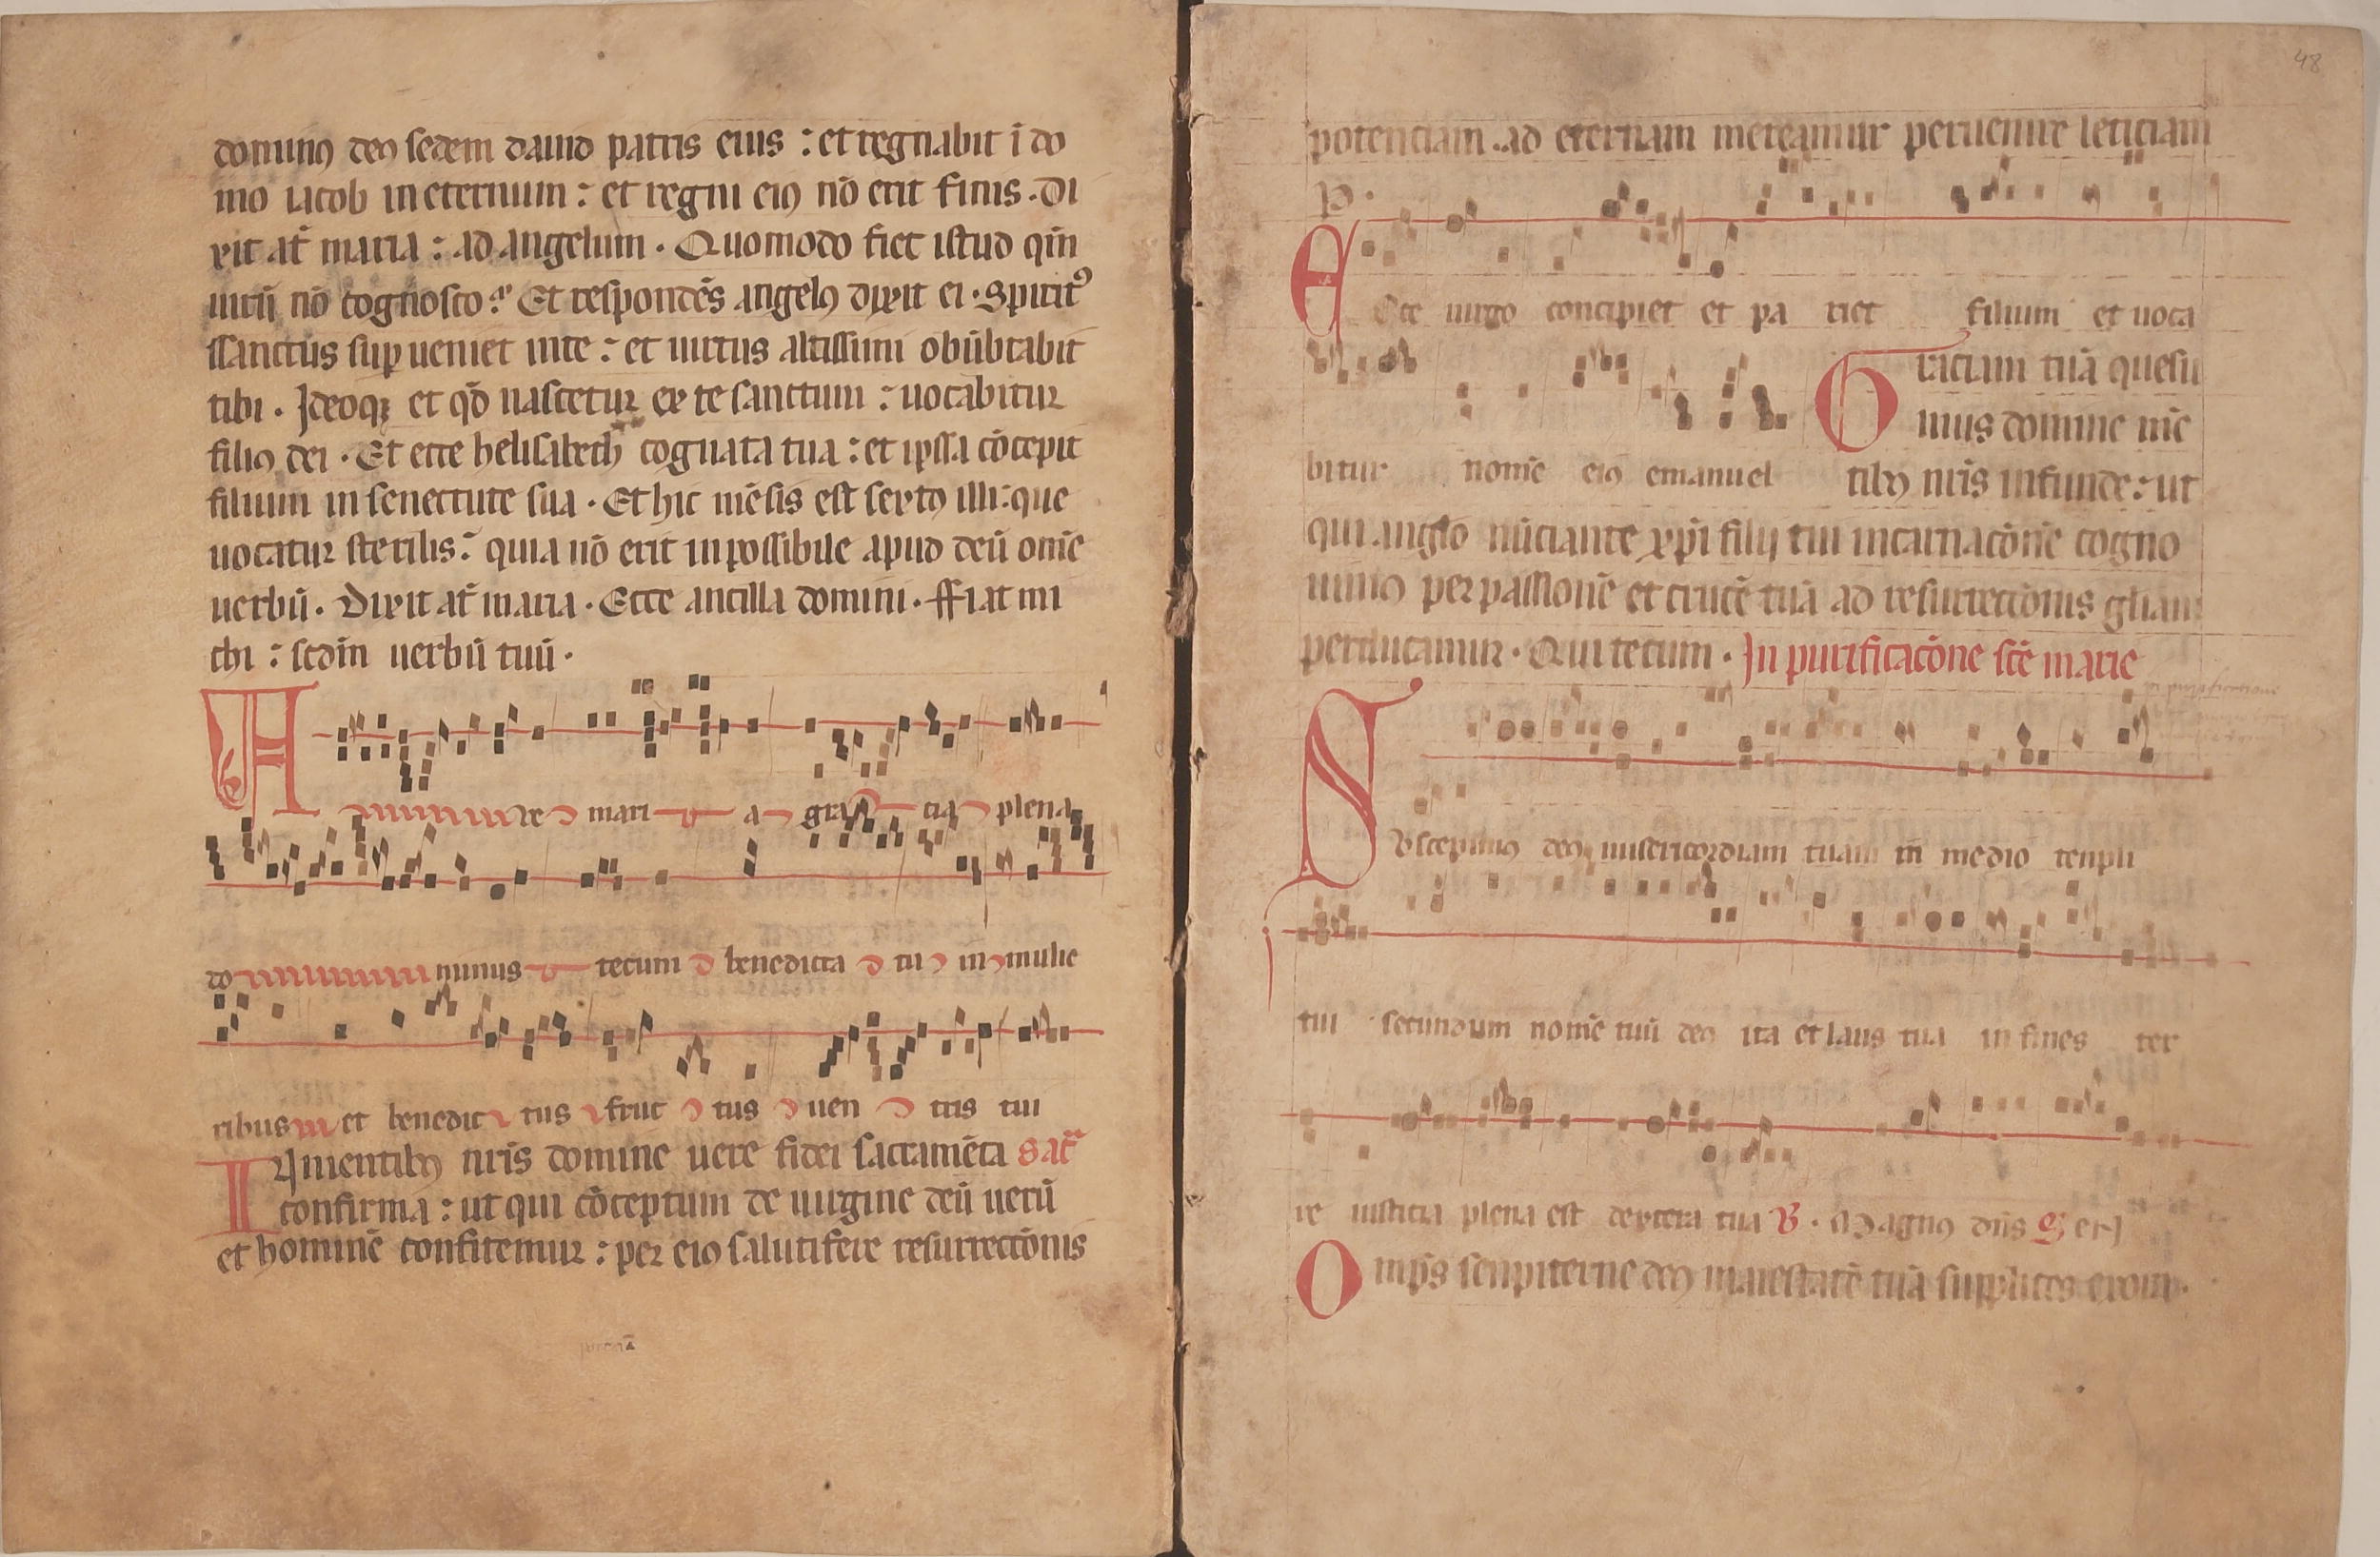 dominꝯ deꝯ sedem dauid patris eius : et regnabit ī do
mo iacob in eternum : et regni eiꝯ nō erit finis . Di
xit at̄ maria : ad angelum . Quomodo fiet istud qm̄
uirū nō cognosco ? Et respondēs angelꝯ dixit ei . Spirit⁹
ssanctus suꝑ ueniet inte : et uirtus altissimi obūbrabit
tibi . Ideoqꝫ et qđ nascetur ex te sanctum : uocabitur
filiꝯ dei . Et ecce helisabeth cognata tua : et ipssa cōcepit
filium in senectute sua . Et hic mēsis est sextꝯ illi : que
uocatur sterilis : quia nō erit inpossibile apud deū om̄e
uerbū . Dixit at̄ maria . Ecce ancilla domini . Ffiat mi
chi : scdm̄ uerbū tuū .
A ue mari a gra cia plena
do minus tecum benedicta tu in mulie
ribus et benedic tus fruc tus uen tris tui
IN mentibꝯ nr̄is domine uere fidei sacramēta sac̄r
confirma : ut qui cōceptum de uirgine deū uerū
et hominē confitemur : per eiꝯ salutifere resurrectōnis
48
potenciam . ad eternam mereamur peruenire leticiam
Ecce uirgo concipiet et pa riet filium et uoca
bitur nomē eiꝯ emanuel
Graciam tuā quesu
mus domine mē
tibꝯ nr̄is infunde : ut
qui anglo nūciante xp̄i filij tui incarnacōnē cogno
uimꝯ per passionē et crucē tuā ad resurrectōnis glīam
perducamur . Qui tecum . In purificacōne sc̄e marie
Suscepimꝯ deꝯ misericordiam tuam in medio templi
tui secundum nomē tuū deꝯ ita et laus tua in fines ter
re iusticia plena est dextera tua V . Magnꝯ dn̄s
Omp̄s sempiterne deꝯ maiestatē tuā supplices exora